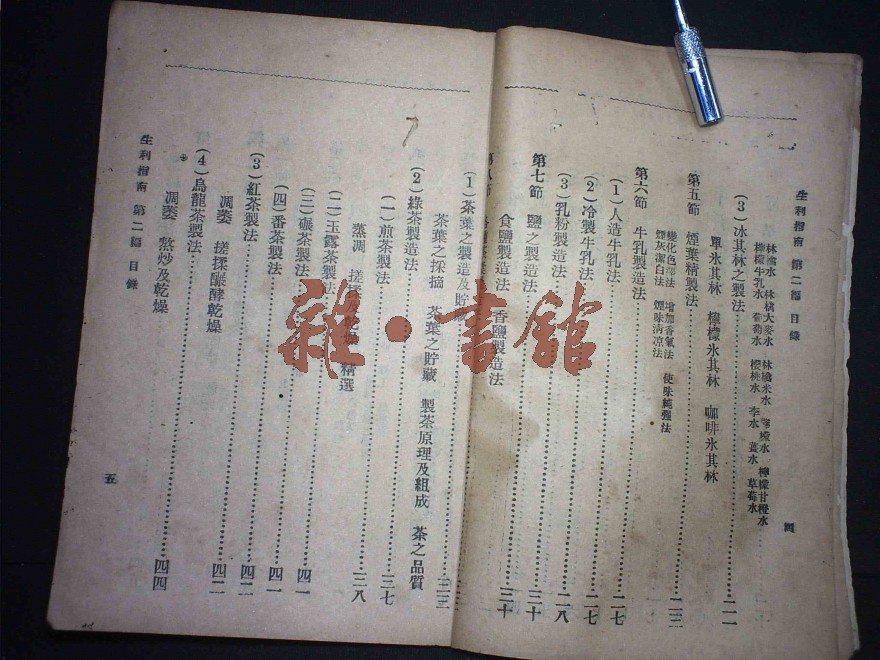 生利指南 第二編 目錄
四
林檎水 林檎大麥水 林檎米水 檸檬水 檸檬甘橙水
檸檬牛乳水 葡萄水 櫻桃水 李水 薑水 草莓水
(3)冰其林之製法 二一
單氷其林 檸檬氷其林 咖啡氷其林
第五節 煙葉精製法 二三
變化色澤法 增加香氣法 使味純強法
煙灰潔白法 煙味清凉法
第六節 牛乳製造法 二七
(1)人造牛乳法 二七
(2)冷製牛乳法 二七
(3)乳粉製造法 二八
第七節 鹽之製造法 三十
食鹽製造法 香鹽製造法 三十
第八節
(1)茶葉之製造及貯藏 三三
茶葉之採摘 茶葉之貯藏 製茶原理及組成 茶之品質
(2)綠茶製造法 三七
(一)煎茶製法 三八
蒸凋 搓揉及乾燥 精選
(二)玉露茶製法 四一
(三)碾茶製法 四一
(四)番茶製法 四一
(3)紅茶製法 四二
凋萎 搓揉醱酵乾燥
(4)烏龍茶製法 四四
凋萎 熬炒及乾燥
生利指南 第二編 目錄
五
雜·書館